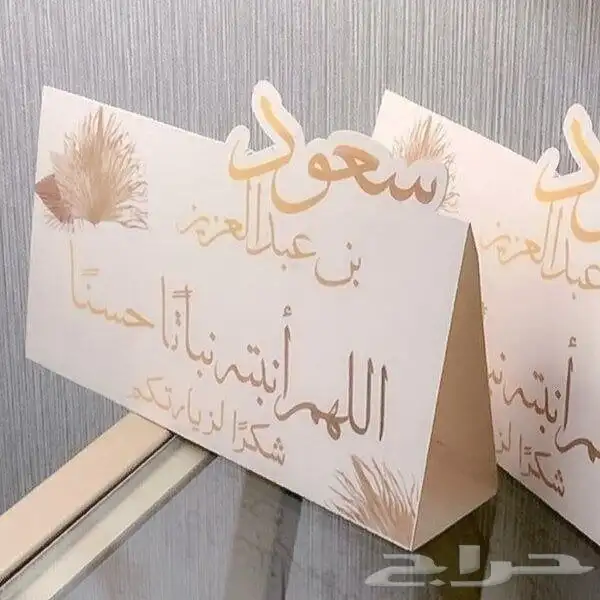 سعود
بن عبدالعزيز
اللهم أنبته نباتًا حسنًا
شكرًا لزيارتكم
سعود
بن عبدالعزيز
اللهم أنبته
شكرًا
حراج